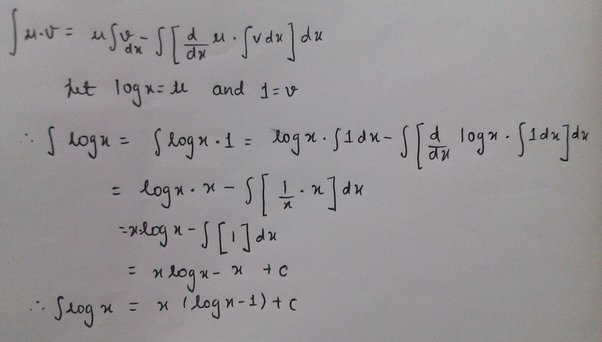 ∫ u·v = u∫v dx − ∫[d/dx u · ∫v dx] dx
Let log x = u and 1 = v
∴ ∫ log x = ∫ log x · 1 = log x · ∫1 dx − ∫[d/dx log x · ∫1 dx] dx
= log x · x − ∫[1/x · x] dx
= x·log x − ∫[1] dx
= x log x − x + c
∴ ∫log x = x (log x − 1) + c